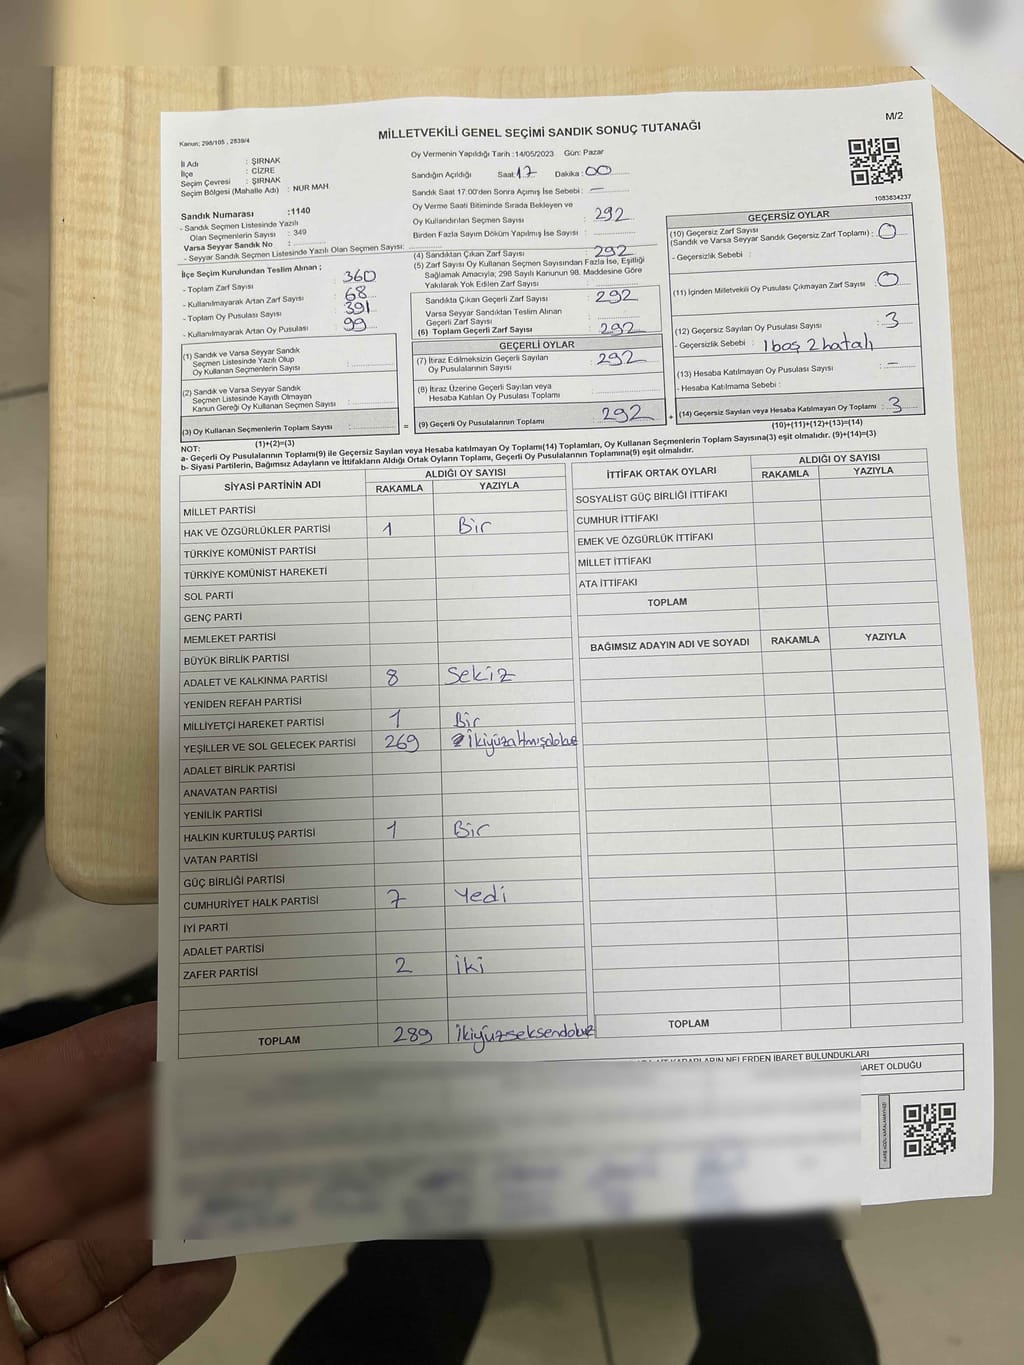 Kanun; 298/105 , 2839/4
MİLLETVEKİLİ GENEL SEÇİMİ SANDIK SONUÇ TUTANAĞI
M/2
İl Adı : ŞIRNAK
İlçe : CİZRE
Seçim Çevresi : ŞIRNAK
Seçim Bölgesi (Mahalle Adı) : NUR MAH.
Sandık Numarası :1140
- Sandık Seçmen Listesinde Yazılı
Olan Seçmenlerin Sayısı : 349
Varsa Seyyar Sandık No :
- Seyyar Sandık Seçmen Listesinde Yazılı Olan Seçmen Sayısı:
İlçe Seçim Kurulundan Teslim Alınan ;
- Toplam Zarf Sayısı : 360
- Kullanılmayarak Artan Zarf Sayısı : 68
- Toplam Oy Pusulası Sayısı : 391
- Kullanılmayarak Artan Oy Pusulası : 99
(1) Sandık ve Varsa Seyyar Sandık
Seçmen Listesinde Yazılı Olup
Oy Kullanan Seçmenlerin Sayısı :
(2) Sandık ve Varsa Seyyar Sandık
Seçmen Listesinde Kayıtlı Olmayan
Kanun Gereği Oy Kullanan Seçmen Sayısı :
(3) Oy Kullanan Seçmenlerin Toplam Sayısı :
(1)+(2)=(3)
Oy Vermenin Yapıldığı Tarih :14/05/2023 Gün: Pazar
Sandığın Açıldığı Saat:17 Dakika:00
Sandık Saat 17:00'den Sonra Açımış İse Sebebi : —
Oy Verme Saati Bitiminde Sırada Bekleyen ve
Oy Kullandırılan Seçmen Sayısı : 292
Birden Fazla Sayım Döküm Yapılmış İse Sayısı :
(4) Sandıktan Çıkan Zarf Sayısı : 292
(5) Zarf Sayısı Oy Kullanan Seçmen Sayısından Fazla İse, Eşitliği
Sağlamak Amacıyla; 298 Sayılı Kanunun 98. Maddesine Göre
Yakılarak Yok Edilen Zarf Sayısı :
Sandıkta Çıkan Geçerli Zarf Sayısı : 292
Varsa Seyyar Sandıktan Teslim Alınan
Geçerli Zarf Sayısı :
(6) Toplam Geçerli Zarf Sayısı : 292
GEÇERLİ OYLAR
(7) İtiraz Edilmeksizin Geçerli Sayılan
Oy Pusulalarının Sayısı : 292
(8) İtiraz Üzerine Geçerli Sayılan veya
Hesaba Katılan Oy Pusulası Toplamı :
= (9) Geçerli Oy Pusulalarının Toplamı : 292
1083834237
GEÇERSİZ OYLAR
(10) Geçersiz Zarf Sayısı
(Sandık ve Varsa Seyyar Sandık Geçersiz Zarf Toplamı) : 0
- Geçersizlik Sebebi :
(11) İçinden Milletvekili Oy Pusulası Çıkmayan Zarf Sayısı : 0
(12) Geçersiz Sayılan Oy Pusulası Sayısı : 3
- Geçersizlik Sebebi : 1 boş 2 hatalı
(13) Hesaba Katılmayan Oy Pusulası Sayısı : —
- Hesaba Katılmama Sebebi :
+ (14) Geçersiz Sayılan veya Hesaba Katılmayan Oy Toplamı : 3
(10)+(11)+(12)+(13)=(14)
NOT:
a- Geçerli Oy Pusulalarının Toplamı(9) ile Geçersiz Sayılan veya Hesaba katılmayan Oy Toplamı(14) Toplamları, Oy Kullanan Seçmenlerin Toplam Sayısına(3) eşit olmalıdır. (9)+(14)=(3)
b- Siyasi Partilerin, Bağımsız Adayların ve İttifakların Aldığı Oy Toplamı, Geçerli Oy Pusulalarının Toplamına(9) eşit olmalıdır.
SİYASİ PARTİNİN ADI ALDIĞI OY SAYISI
RAKAMLA YAZIYLA
MİLLET PARTİSİ
HAK VE ÖZGÜRLÜKLER PARTİSİ 1 Bir
TÜRKİYE KOMÜNİST PARTİSİ
TÜRKİYE KOMÜNİST HAREKETİ
SOL PARTİ
GENÇ PARTİ
MEMLEKET PARTİSİ
BÜYÜK BİRLİK PARTİSİ
ADALET VE KALKINMA PARTİSİ 8 Sekiz
YENİDEN REFAH PARTİSİ
MİLLİYETÇİ HAREKET PARTİSİ 1 Bir
YEŞİLLER VE SOL GELECEK PARTİSİ 269 ikiyüzaltmışdokuz
ADALET BİRLİK PARTİSİ
ANAVATAN PARTİSİ
YENİLİK PARTİSİ
HALKIN KURTULUŞ PARTİSİ 1 Bir
VATAN PARTİSİ
GÜÇ BİRLİĞİ PARTİSİ
CUMHURİYET HALK PARTİSİ 7 Yedi
İYİ PARTİ
ADALET PARTİSİ
ZAFER PARTİSİ 2 iki
TOPLAM 289 ikiyüzseksendokuz
İTTİFAK ORTAK OYLARI ALDIĞI OY SAYISI
RAKAMLA YAZIYLA
SOSYALİST GÜÇ BİRLİĞİ İTTİFAKI
CUMHUR İTTİFAKI
EMEK VE ÖZGÜRLÜK İTTİFAKI
MİLLET İTTİFAKI
ATA İTTİFAKI
TOPLAM
BAĞIMSIZ ADAYIN ADI VE SOYADI RAKAMLA YAZIYLA
TOPLAM
KARARLARIN NELERDEN İBARET BULUNDUKLARI
OLDUĞU